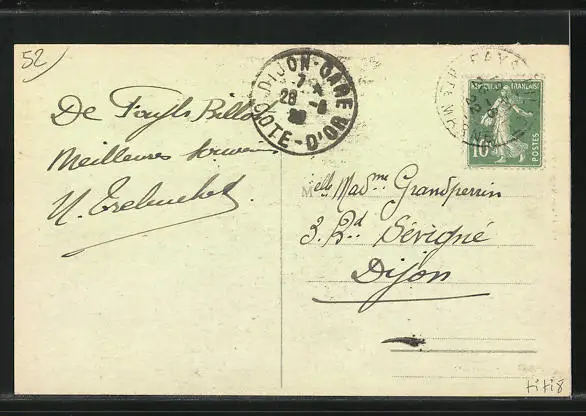 52
De Fayls Billot
Meilleures souvenirs
DIJON-GARE
7
28 -6
COTE-D'OR
FAYS
REPUBLIQUE FRANÇAISE
10c
POSTES
Melle Madme Grandperrin
3. Bd Sévigné
Dijon
titi8